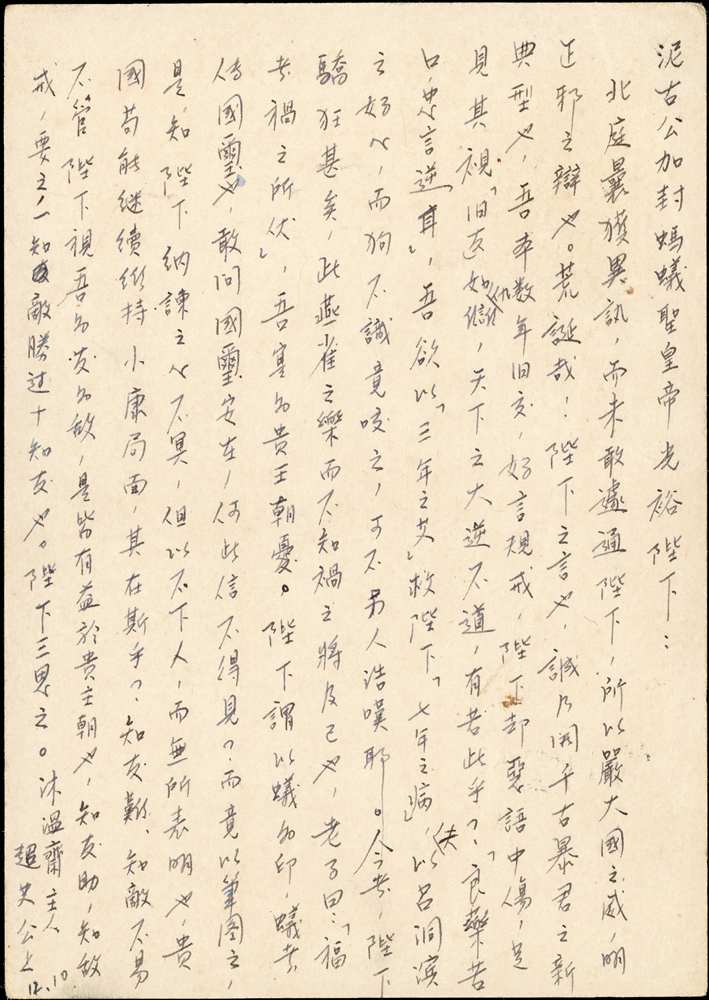 泥古公加封螞蟻聖皇帝光裕陛下：
北庭曩獲異訊，而未敢遽通陛下，所以嚴大國之威，明
正邪之辯也。荒誕哉！陛下之言也，誠乃開千古暴君之新
典型也，吾本数年旧交，好言規戒，陛下却惡語中傷，足
見其視「旧友如仇讎」，天下之大逆不道，有若此乎？「良藥苦
口，忠言逆耳」，吾欲以「三年之艾」救陛下「七年之病」，以君洞濱
之好心，而狗不識竟咬之，可不另人浩嘆耶。今者，陛下
驕狂甚矣，此燕雀之樂而不知禍之將及己也，老子曰：「福
者禍之所伏」，吾寔為貴王朝憂。陛下謂以蟻為印，蟻者，
传國璽也，敢问國璽安在，何此信不得見？而竟以筆图之，
是知陛下納諫之心不冥，但以不下人，而無所表明也，貴
國苟能继續維持小康局面，其在斯乎？知友難、知敵不易
不管陛下視吾為友為敌，是皆有益於貴王朝也，知友助，知敌
戒，要之，一知敵勝过十知友也。陛下三思之。沐溫齋主人
超史公上
12.10.